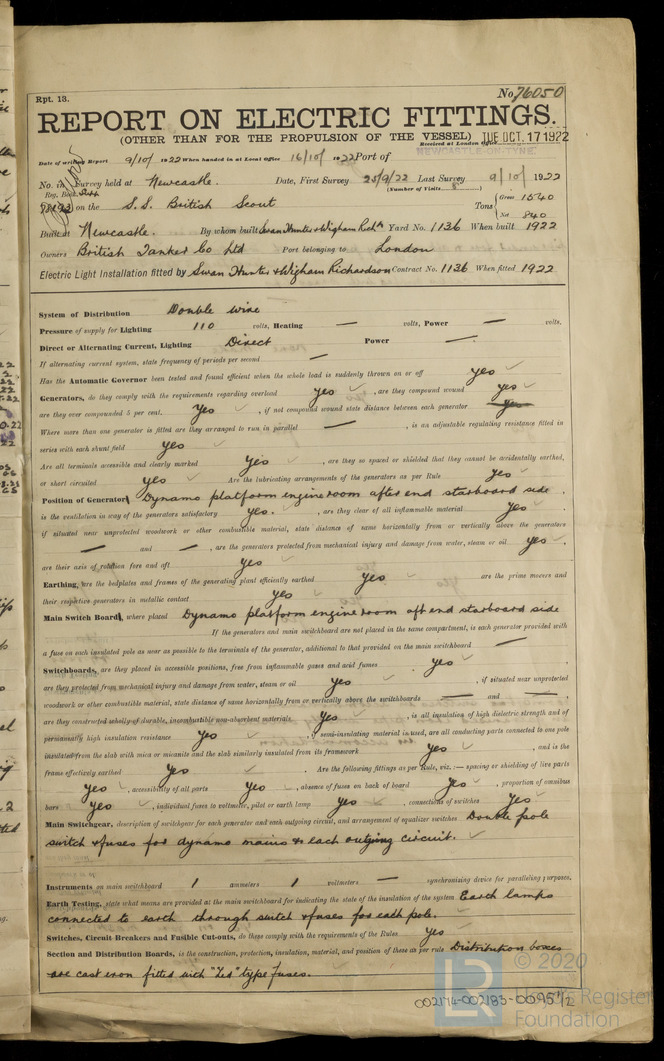 Rpt. 13.
No. 76050
REPORT ON ELECTRIC FITTINGS.
(OTHER THAN FOR THE PROPULSION OF THE VESSEL)
TUE. OCT. 17 1922
Received at London Office
Date of writing Report 9/10/1922 When handed in at Local Office 16/10/1922 Port of NEWCASTLE-ON-TYNE
No. in Survey held at Newcastle. Date, First Survey 25/9/22 Last Survey 9/10/1922
Reg. Book. (Number of Visits
on the S.S. British Scout Tons Gross 1540
Net 840
Built at Newcastle. By whom built Swan Hunter & Wigham Richn Yard No. 1136 When built 1922
Owners British Tanker Co Ltd Port belonging to London
Electric Light Installation fitted by Swan Hunter & Wigham Richardson Contract No. 1136 When fitted 1922
System of Distribution Double wire
Pressure of supply for Lighting 110 volts, Heating — volts, Power — volts.
Direct or Alternating Current, Lighting Direct Power —
If alternating current system, state frequency of periods per second —
Has the Automatic Governor been tested and found efficient when the whole load is suddenly thrown on or off yes
Generators, do they comply with the requirements regarding overload yes, are they compound wound yes
are they over compounded 5 per cent. yes, if not compound wound state distance between each generator yes
Where more than one generator is fitted are they arranged to run in parallel —, is an adjustable regulating resistance fitted in
series with each shunt field yes
Are all terminals accessible and clearly marked yes, are they so spaced or shielded that they cannot be accidentally earthed,
or short circuited yes Are the lubricating arrangements of the generators as per Rule yes
Position of Generators Dynamo platform engine room after end starboard side.
is the ventilation in way of the generators satisfactory yes., are they clear of all inflammable material yes.
if situated near unprotected woodwork or other combustible material, state distance of same horizontally from or vertically above the generators
— and —, are the generators protected from mechanical injury and damage from water, steam or oil yes.
are their axis of rotation fore and aft yes
Earthing, are the bedplates and frames of the generating plant efficiently earthed yes are the prime movers and
their respective generators in metallic contact yes
Main Switch Boards, where placed Dynamo platform engine room aft end starboard side
If the generators and main switchboard are not placed in the same compartment, is each generator provided with
a fuse on each insulated pole as near as possible to the terminals of the generator, additional to that provided on the main switchboard —
Switchboards, are they placed in accessible positions, free from inflammable gases and acid fumes yes,
are they protected from mechanical injury and damage from water, steam or oil yes, if situated near unprotected
woodwork or other combustible material, state distance of same horizontally from or vertically above the switchboards — and —,
are they constructed wholly of durable, incombustible non-absorbent materials yes, is all insulation of high dielectric strength and of
permanently high insulation resistance yes, if semi-insulating material is used, are all conducting parts connected to one pole
insulated from the slab with mica or micanite and the slab similarly insulated from its framework yes, and is the
frame effectively earthed yes. Are the following fittings as per Rule, viz.:— spacing or shielding of live parts
yes, accessibility of all parts yes, absence of fuses on back of board yes, proportion of omnibus
bars yes, individual fuses to voltmeter, pilot or earth lamp yes, connections of switches yes
Main Switchgear, description of switchgear for each generator and each outgoing circuit, and arrangement of equalizer switches Double pole
switch & fuses for dynamo mains & each outgoing circuit.
Instruments on main switchboard 1 ammeters 1 voltmeters — synchronizing device for paralleling purposes.
Earth Testing, state what means are provided at the main switchboard for indicating the state of the insulation of the system Earth lamps
connected to earth through switch & fuses for each pole.
Switches, Circuit Breakers and Fusible Cut-outs, do these comply with the requirements of the Rules yes
Section and Distribution Boards, is the construction, protection, insulation, material, and position of these as per rule Distribution boxes
are cast iron fitted with "Zed" type fuses.
© 2020
LR
Lloyd's Register
Foundation
002174-002183-0095 1/2